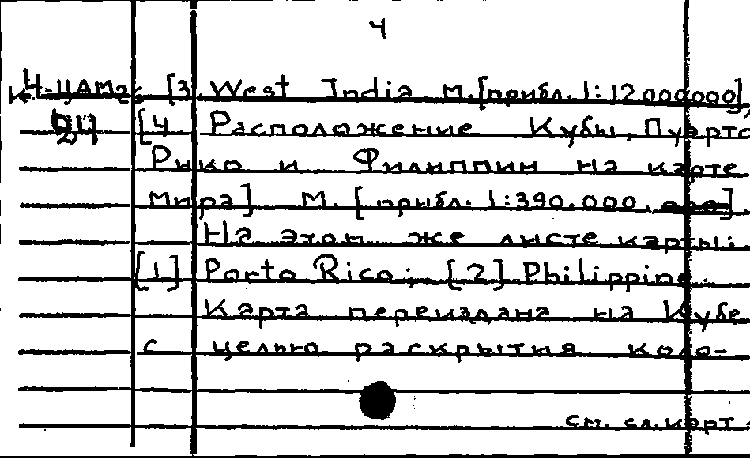 4
К-ЦАм2: [3. West India М.[прибл. 1:12 000000],
[4. Расположение Кубы, Пуэрто
Рико и Филиппин на карте
мира] М. [прибл. 1:390.000.000].
На этом же листе карты:
[1] Porto Rico; [2] Philippine.
Карта переиздана на Кубе
с целью раскрытия коло-
см. сл. карт.